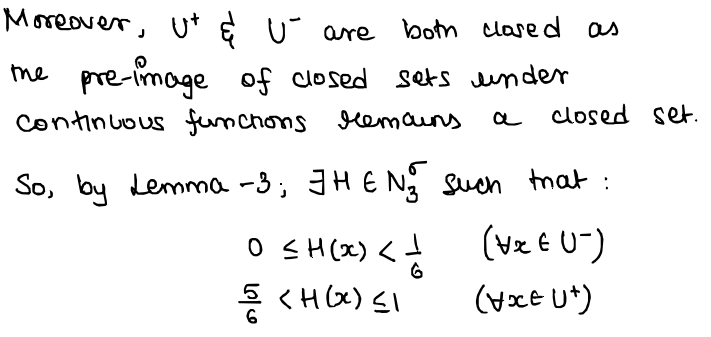 Moreover, U⁺ & U⁻ are both closed as
the pre-image of closed sets under
continuous functions remains a closed set.
So, by Lemma-3; ∃ H ∈ N₃^σ such that :
0 ≤ H(x) < 1/6 (∀x ∈ U⁻)
5/6 < H(x) ≤ 1 (∀x ∈ U⁺)